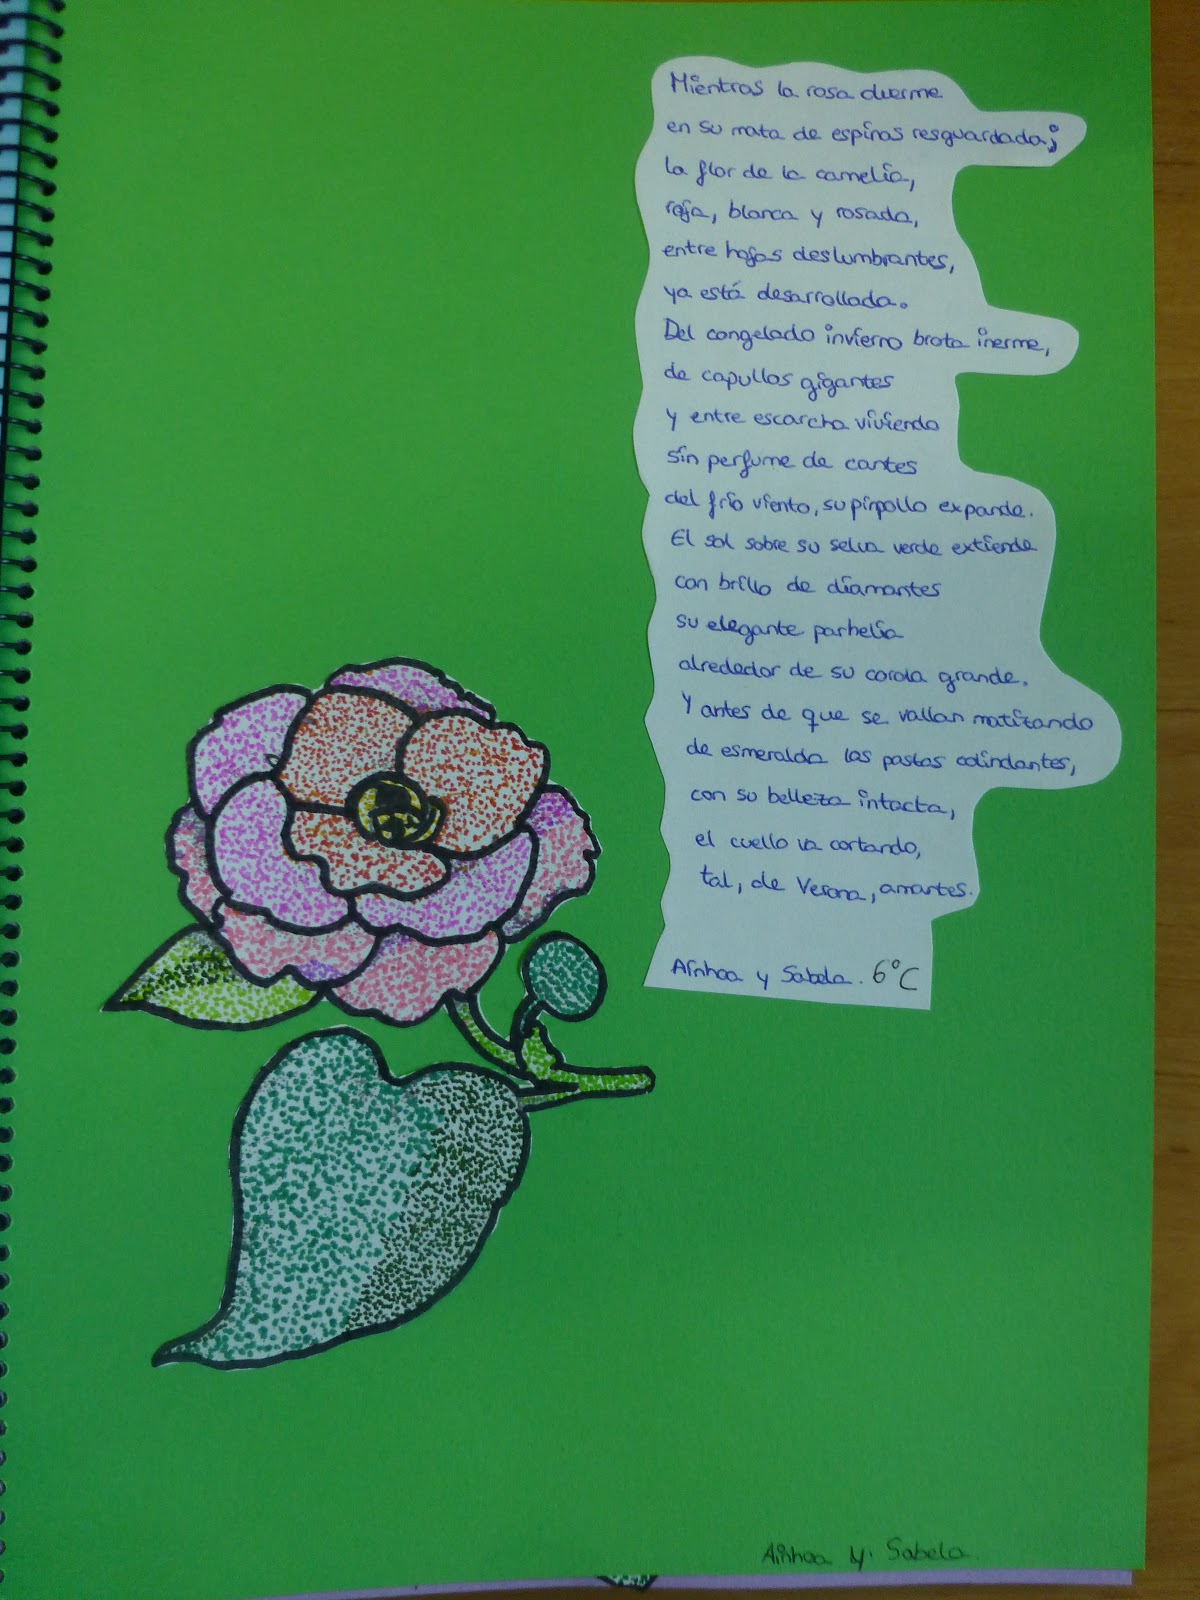 Mientras la rosa duerme
en su mata de espinas resguardada;
la flor de la camelia,
roja, blanca y rosada,
entre hojas deslumbrantes,
ya está desarrollada.
Del congelado invierno brota inerme,
de capullos gigantes
y entre escarcha viviendo
sin perfume de cantes
del frío viento, su pinpollo expande.
El sol sobre su selva verde extiende
con brillo de diamantes
su elegante parhelia
alrededor de su corola grande.
Y antes de que se vallan matizando
de esmeralda los pastos colindantes,
con su belleza intacta,
el cuello va cortando,
tal, de Verona, amantes.
Ainhoa y Sabela. 6°C
Ainhoa y Sabela.